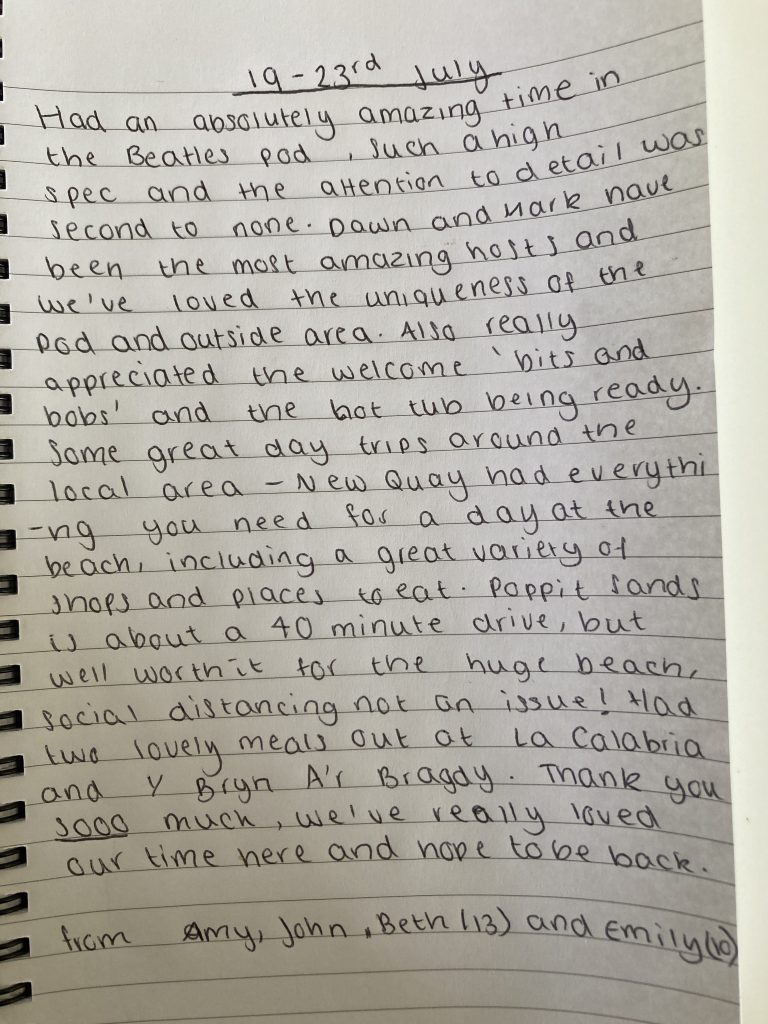 19-23rd July
Had an absolutely amazing time in
the Beatles pod, such a high
spec and the attention to detail was
second to none. Dawn and Mark have
been the most amazing hosts and
we've loved the uniqueness of the
pod and outside area. Also really
appreciated the welcome 'bits and
bobs' and the hot tub being ready.
Some great day trips around the
local area - New Quay had everythi
-ng you need for a day at the
beach, including a great variety of
shops and places to eat. Poppit Sands
is about a 40 minute drive, but
well worth it for the huge beach,
social distancing not an issue! Had
two lovely meals out at La Calabria
and Y Bryn A'r Bragdy. Thank you
sooo much, we've really loved
our time here and hope to be back.
from Amy, John, Beth (13) and Emily (10)